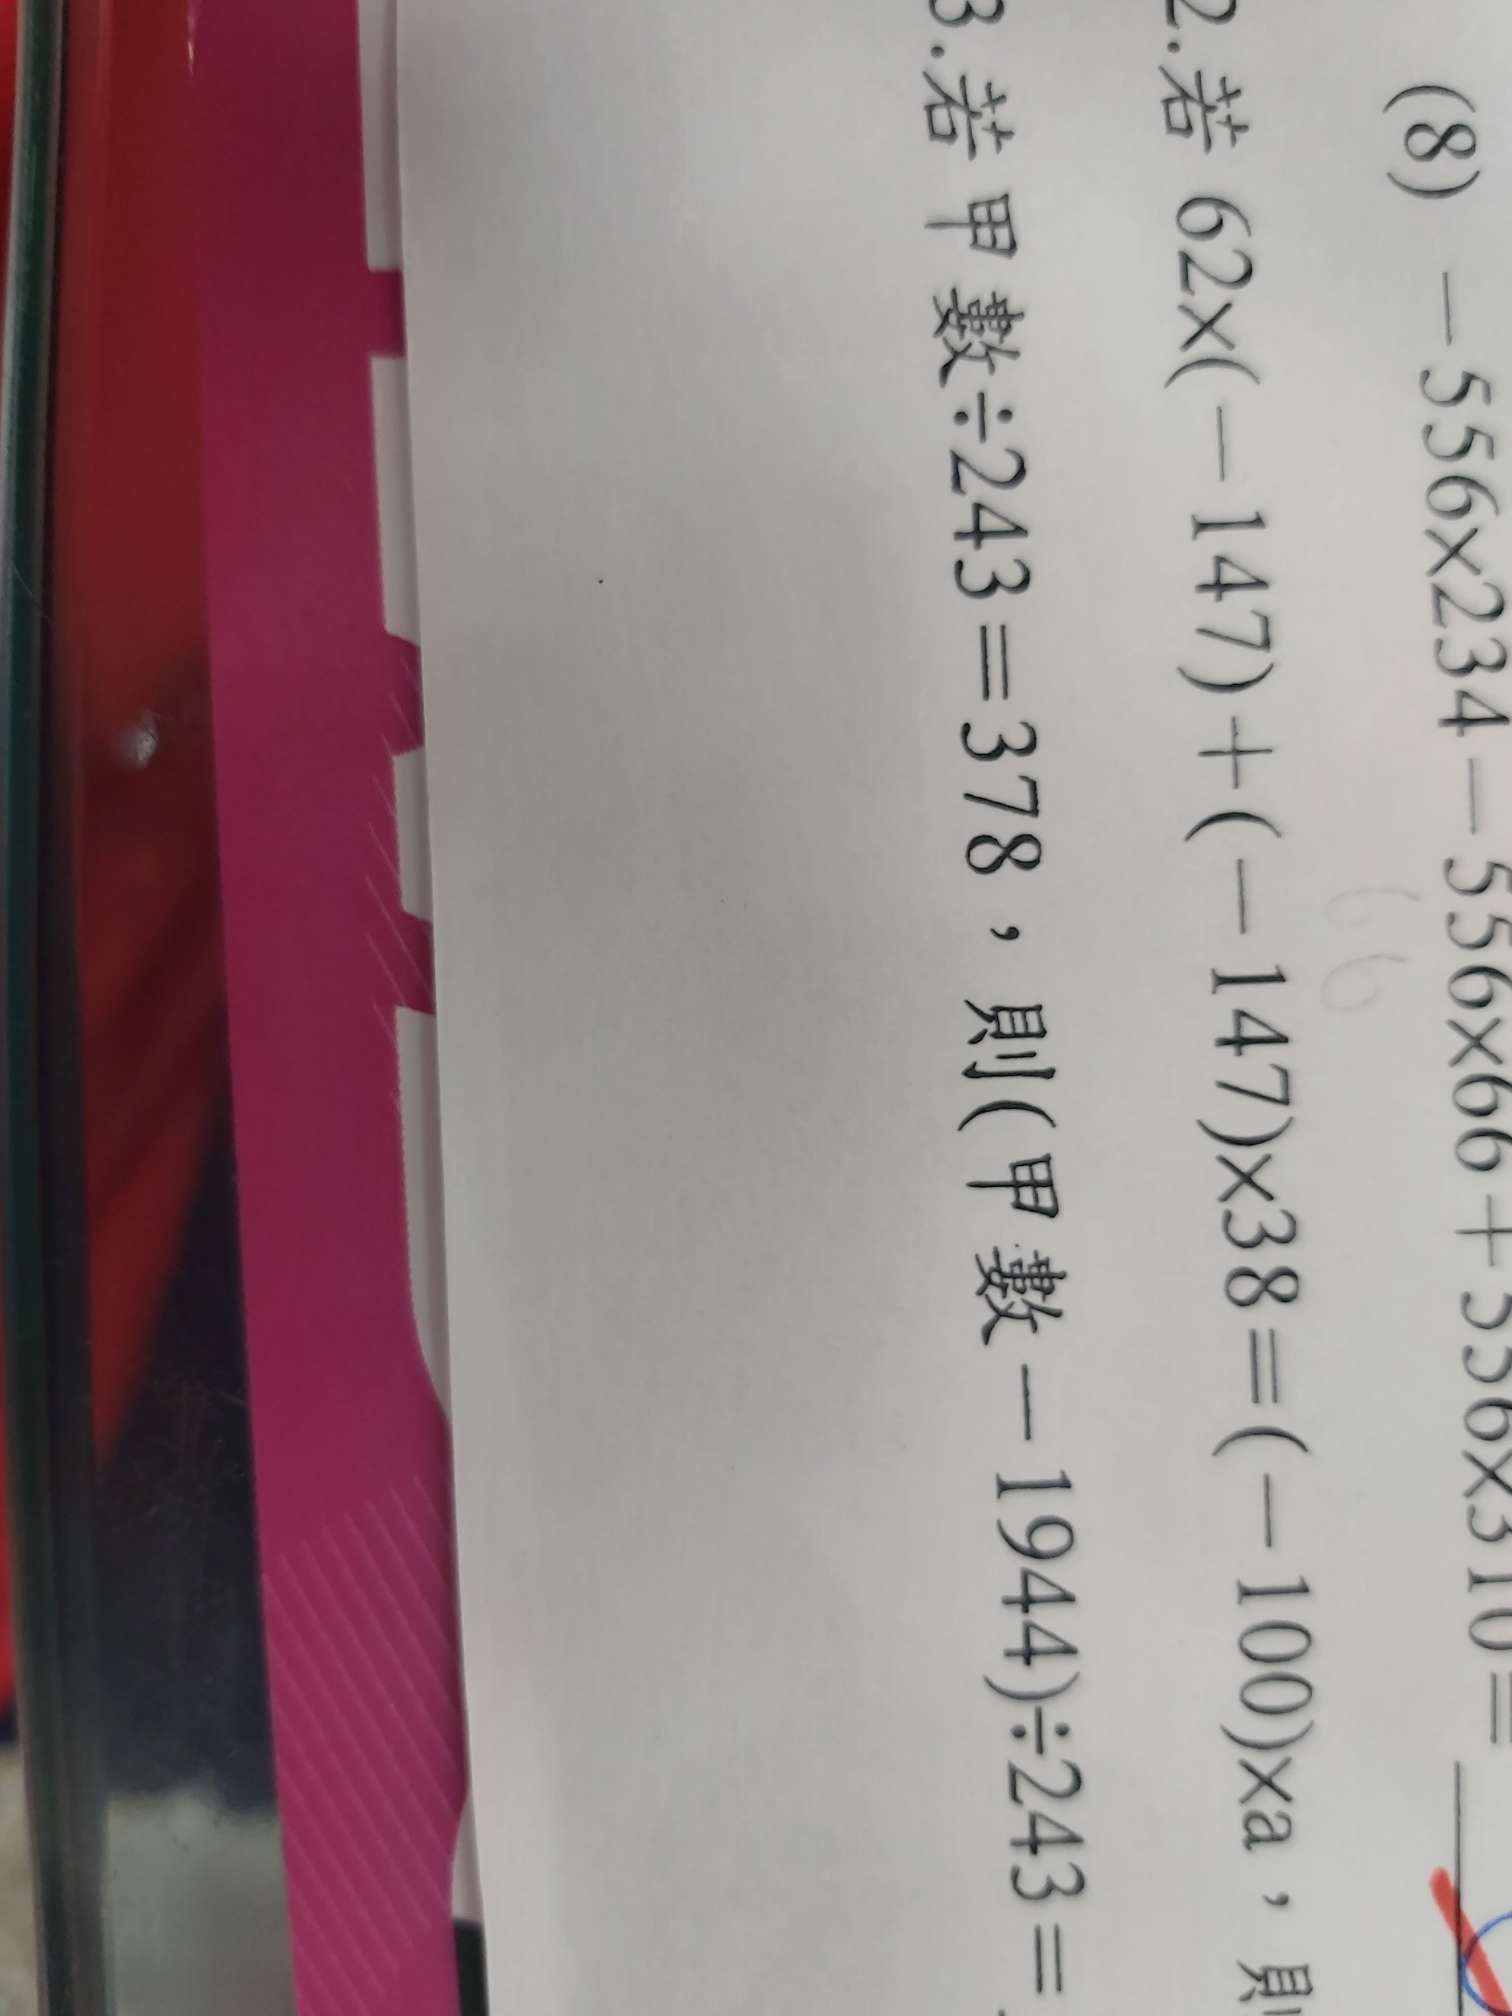 (8) －556x234－556x66＋556x310＝
66
2.若 62x(－147)＋(－147)x38＝(－100)xa，則
3.若 甲 數÷243＝378，則(甲 數－1944)÷243＝